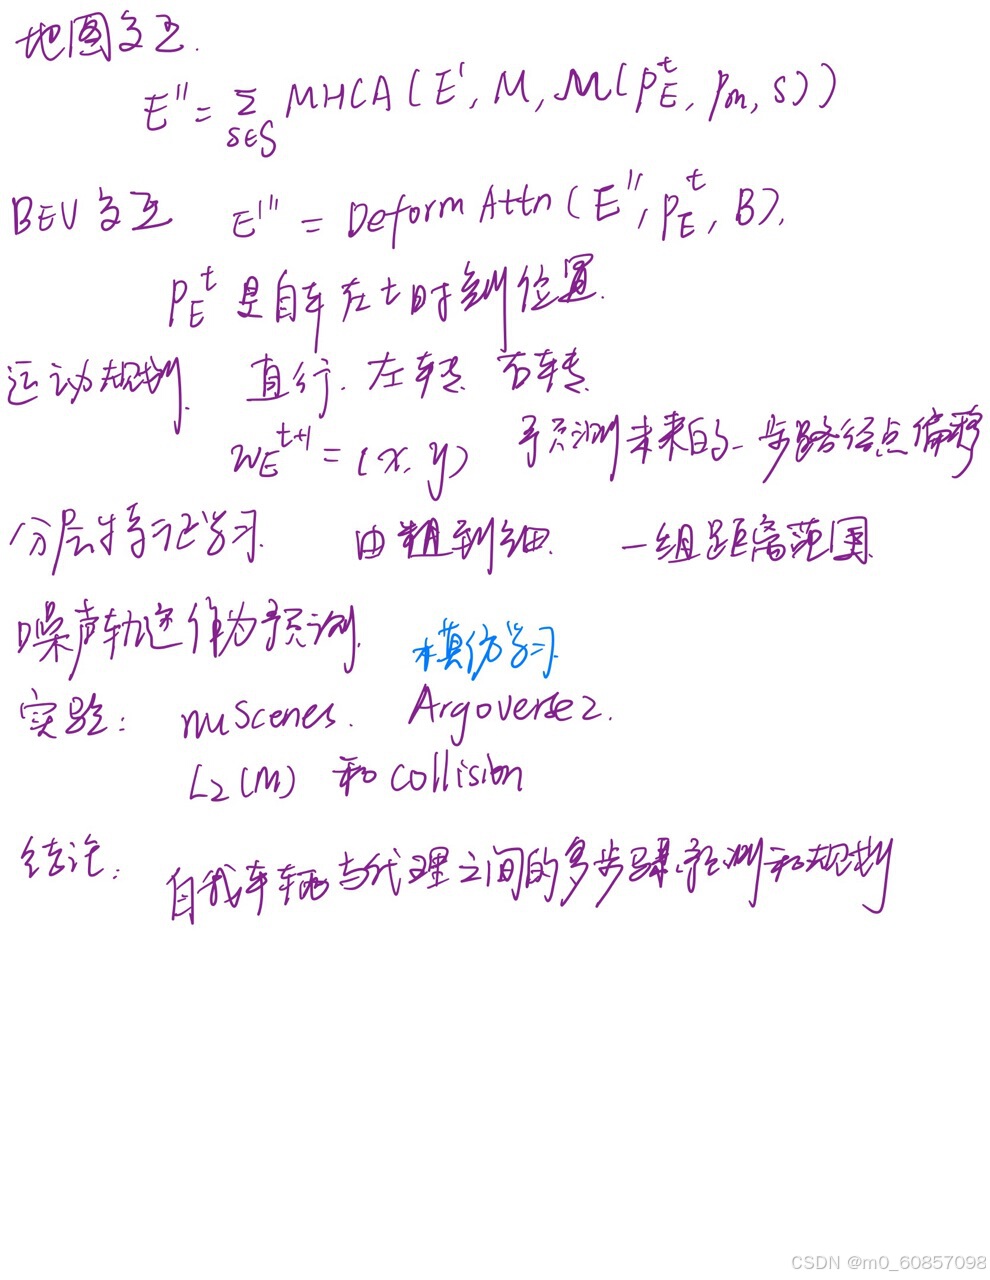 地图交互.
E'' = Σ_{s∈S} MHCA(E', M, M(P_E^t, p_m, s))
BEV交互 E''' = Deform Attn (E'', P_E^t, B).
P_E^t 是自车在t时刻位置.
运动规划. 直行. 左转 右转
w_E^{t+1} = (x, y) 预测未来的一步路径点偏移
分层特征学习. 由粗到细. 一组距离范围.
噪声轨迹作为预测. 模仿学习.
实验: nuScenes. Argoverse2.
L2(M) 和 collision
结论:
自我车辆与代理之间的多步骤预测和规划
CSDN @m0_60857098